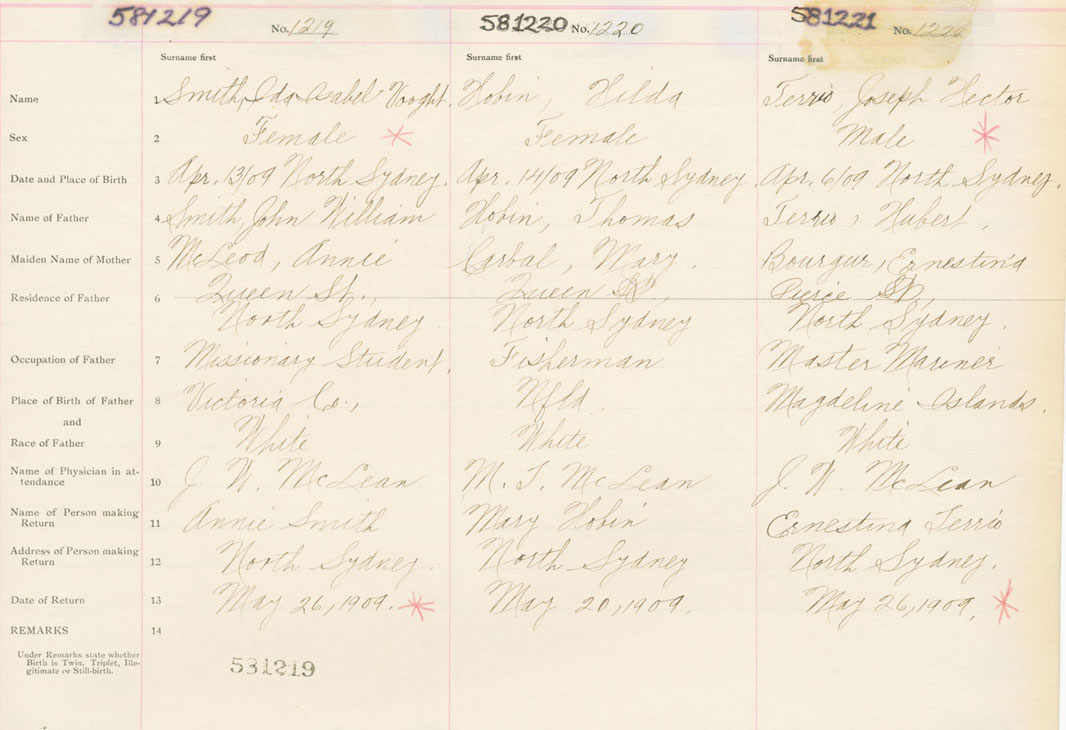 581219 No. 1219 581220 No. 1220 581221 No.
Surname first Surname first Surname first
Name 1 Smith, Ida Isabel Vooght. Hobin, Hilda Terrio, Joseph Hector
Sex 2 Female Female Male
Date and Place of Birth 3 Apr. 13/09 North Sydney. Apr. 14/09 North Sydney. Apr. 6/09 North Sydney.
Name of Father 4 Smith, John William Hobin, Thomas Terrio, Hubert.
Maiden Name of Mother 5 McLeod, Annie Mary. Ernestina
Residence of Father 6 Queen St., Queen St., Pierce St,
North Sydney. North Sydney North Sydney.
Occupation of Father 7 Missionary Student. Fisherman Master Mariner
Place of Birth of Father 8 Victoria Co., Nfld. Magdeline Islands.
and
Race of Father 9 White White White
Name of Physician in at-
tendance 10 J. W. McLean M. T. McLean J. W. McLean
Name of Person making
Return 11 Annie Smith Mary Hobin Ernestina Terrio
Address of Person making
Return 12 North Sydney. North Sydney North Sydney.
Date of Return 13 May 26, 1909. May 20, 1909. May 26, 1909.
REMARKS 14
Under Remarks state whether
Birth is Twin. Triplet, Ille-
gitimate or Still-birth.
581219